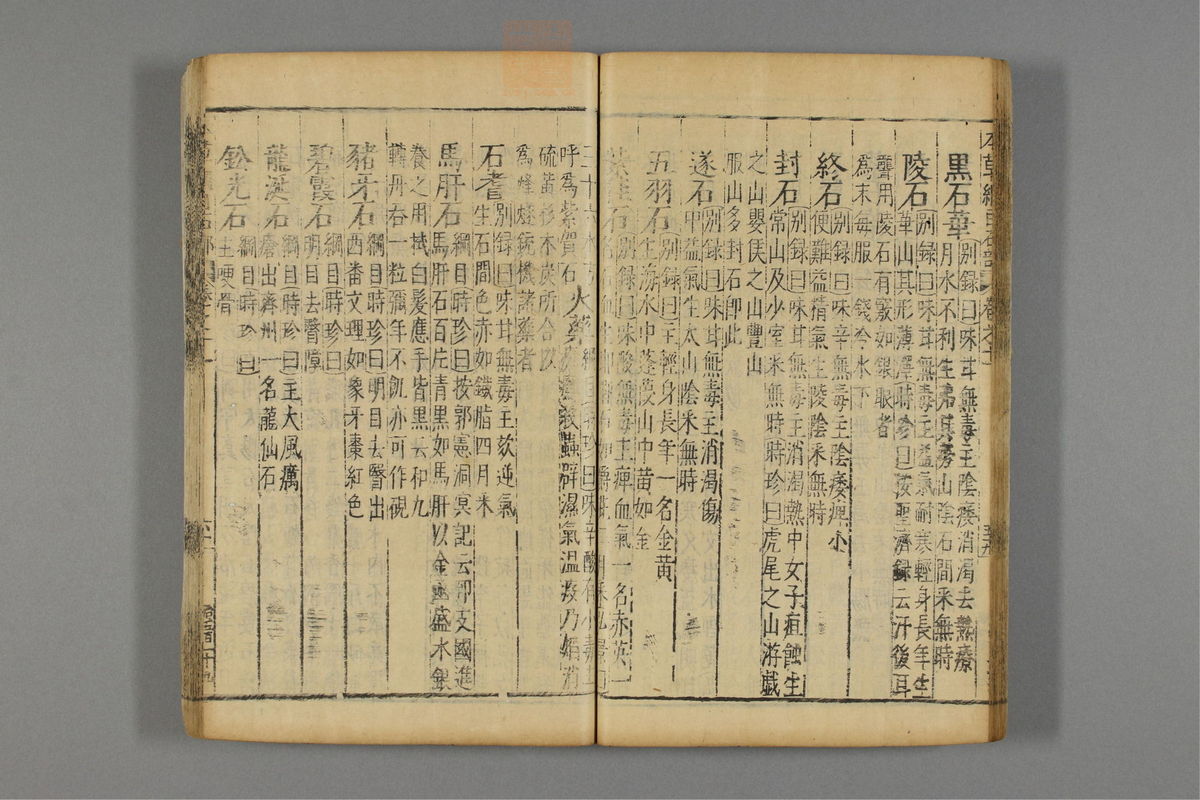 本草綱目石部 卷之十一
黑石華 別録曰味甘無毒主陰痿消渴去熱療
月水不利生弗其勞山陰石間采無時
陵石 別録曰味甘無毒主益氣耐寒輕身長年生
華山其形薄澤時珍曰按聖濟録云汗後耳
聾用陵石有竅如銀眼者
為末每服一錢冷水下
終石 別録曰味辛無毒主陰痿痺小
便難益精氣生陵陰采無時
封石 別録曰味甘無毒主消渴熱中女子疽蝕生
常山及少室采無時時珍曰虎尾之山游戲
之山嬰侯之山豐山
服山多封石即此
遂石 別録曰味甘無毒主消渴傷
中益氣生太山陰采無時
五羽石 別録曰主輕身長年一名金黄
生海水中蓬葭山中黄如金
紫佳石 別録曰味酸無毒主痺血氣一名赤英一
呼為紫賀石
火藥 味辛酸有小毒
瘡癬殺蟲辟濕氣温疫乃焰消
硫黄杉木炭所合以
為烽燧銃機諸藥者
石耆 別録曰味甘無毒主欬逆氣
生石間色赤如鐵脂四月采
馬肝石 綱目時珍曰按郭憲洞冥記云郅支國進
馬肝石百斤青黑如馬肝以金函盛水銀
養之用拭白髮應手皆黑云和九
轉丹吞一粒彌年不飢亦可作硯
豬牙石 綱目時珍曰明目去翳出
西番文理如象牙棗紅色
碧霞石 綱目時珍曰
明目去翳障
龍涎石 綱目時珍曰主大風癘
瘡出齊州一名龍仙石
鉛光石 綱目時珍曰
主哽骨